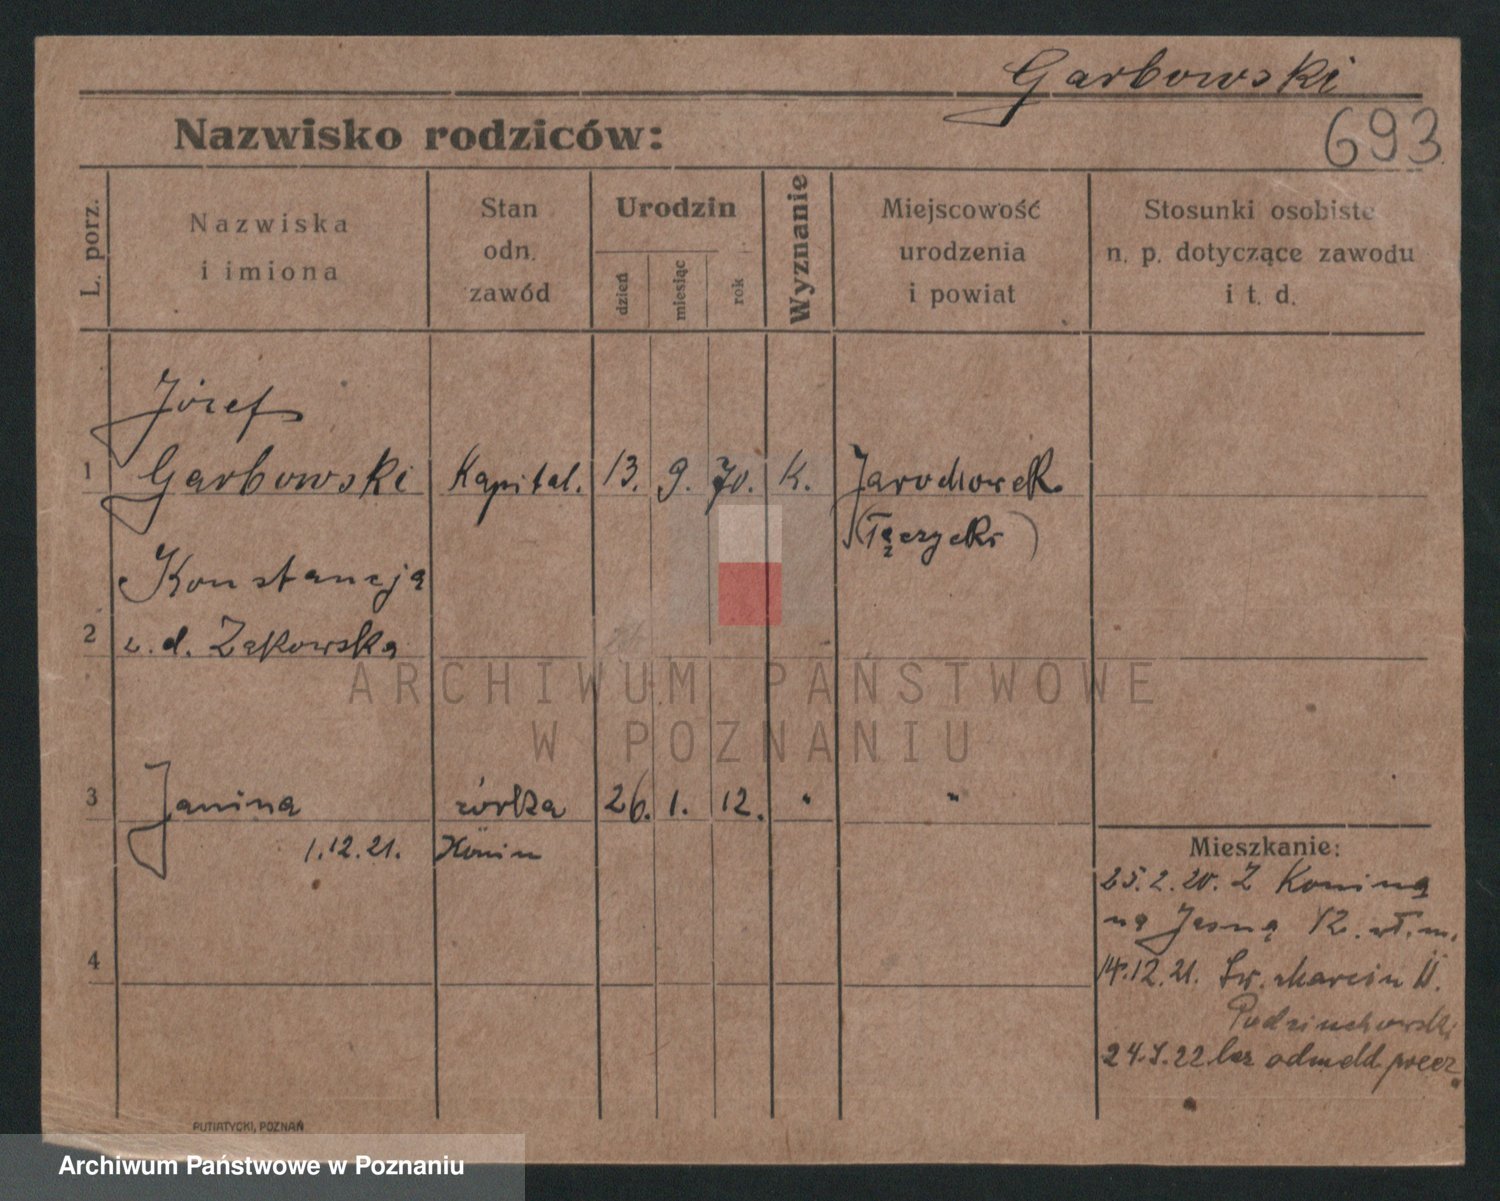 Garbowski
Nazwisko rodziców:
693
L. porz.
Nazwiska
i imiona
Stan
odn.
zawód
Urodzin
dzień
miesiąc
rok
Wyznanie
Miejscowość
urodzenia
i powiat
Stosunki osobiste
n. p. dotyczące zawodu
i t. d.
Józef
1 Garbowski Kapital. 13. 9. 70. K.
(Łęczycki)
Konstancja
2 z. d. Żąkowska
3 Janina córka 26. 1. 12. " "
1.12.21. Konin
4
Mieszkanie:
25.2.20. Z Konina
na Jasną 12. wł. m.
14.12.21. Św. Marcin 11.
24.7.22 bez odmeld precz
ARCHIWUM PAŃSTWOWE
W POZNANIU
PUTIATYCKI, POZNAŃ
Archiwum Państwowe w Poznaniu